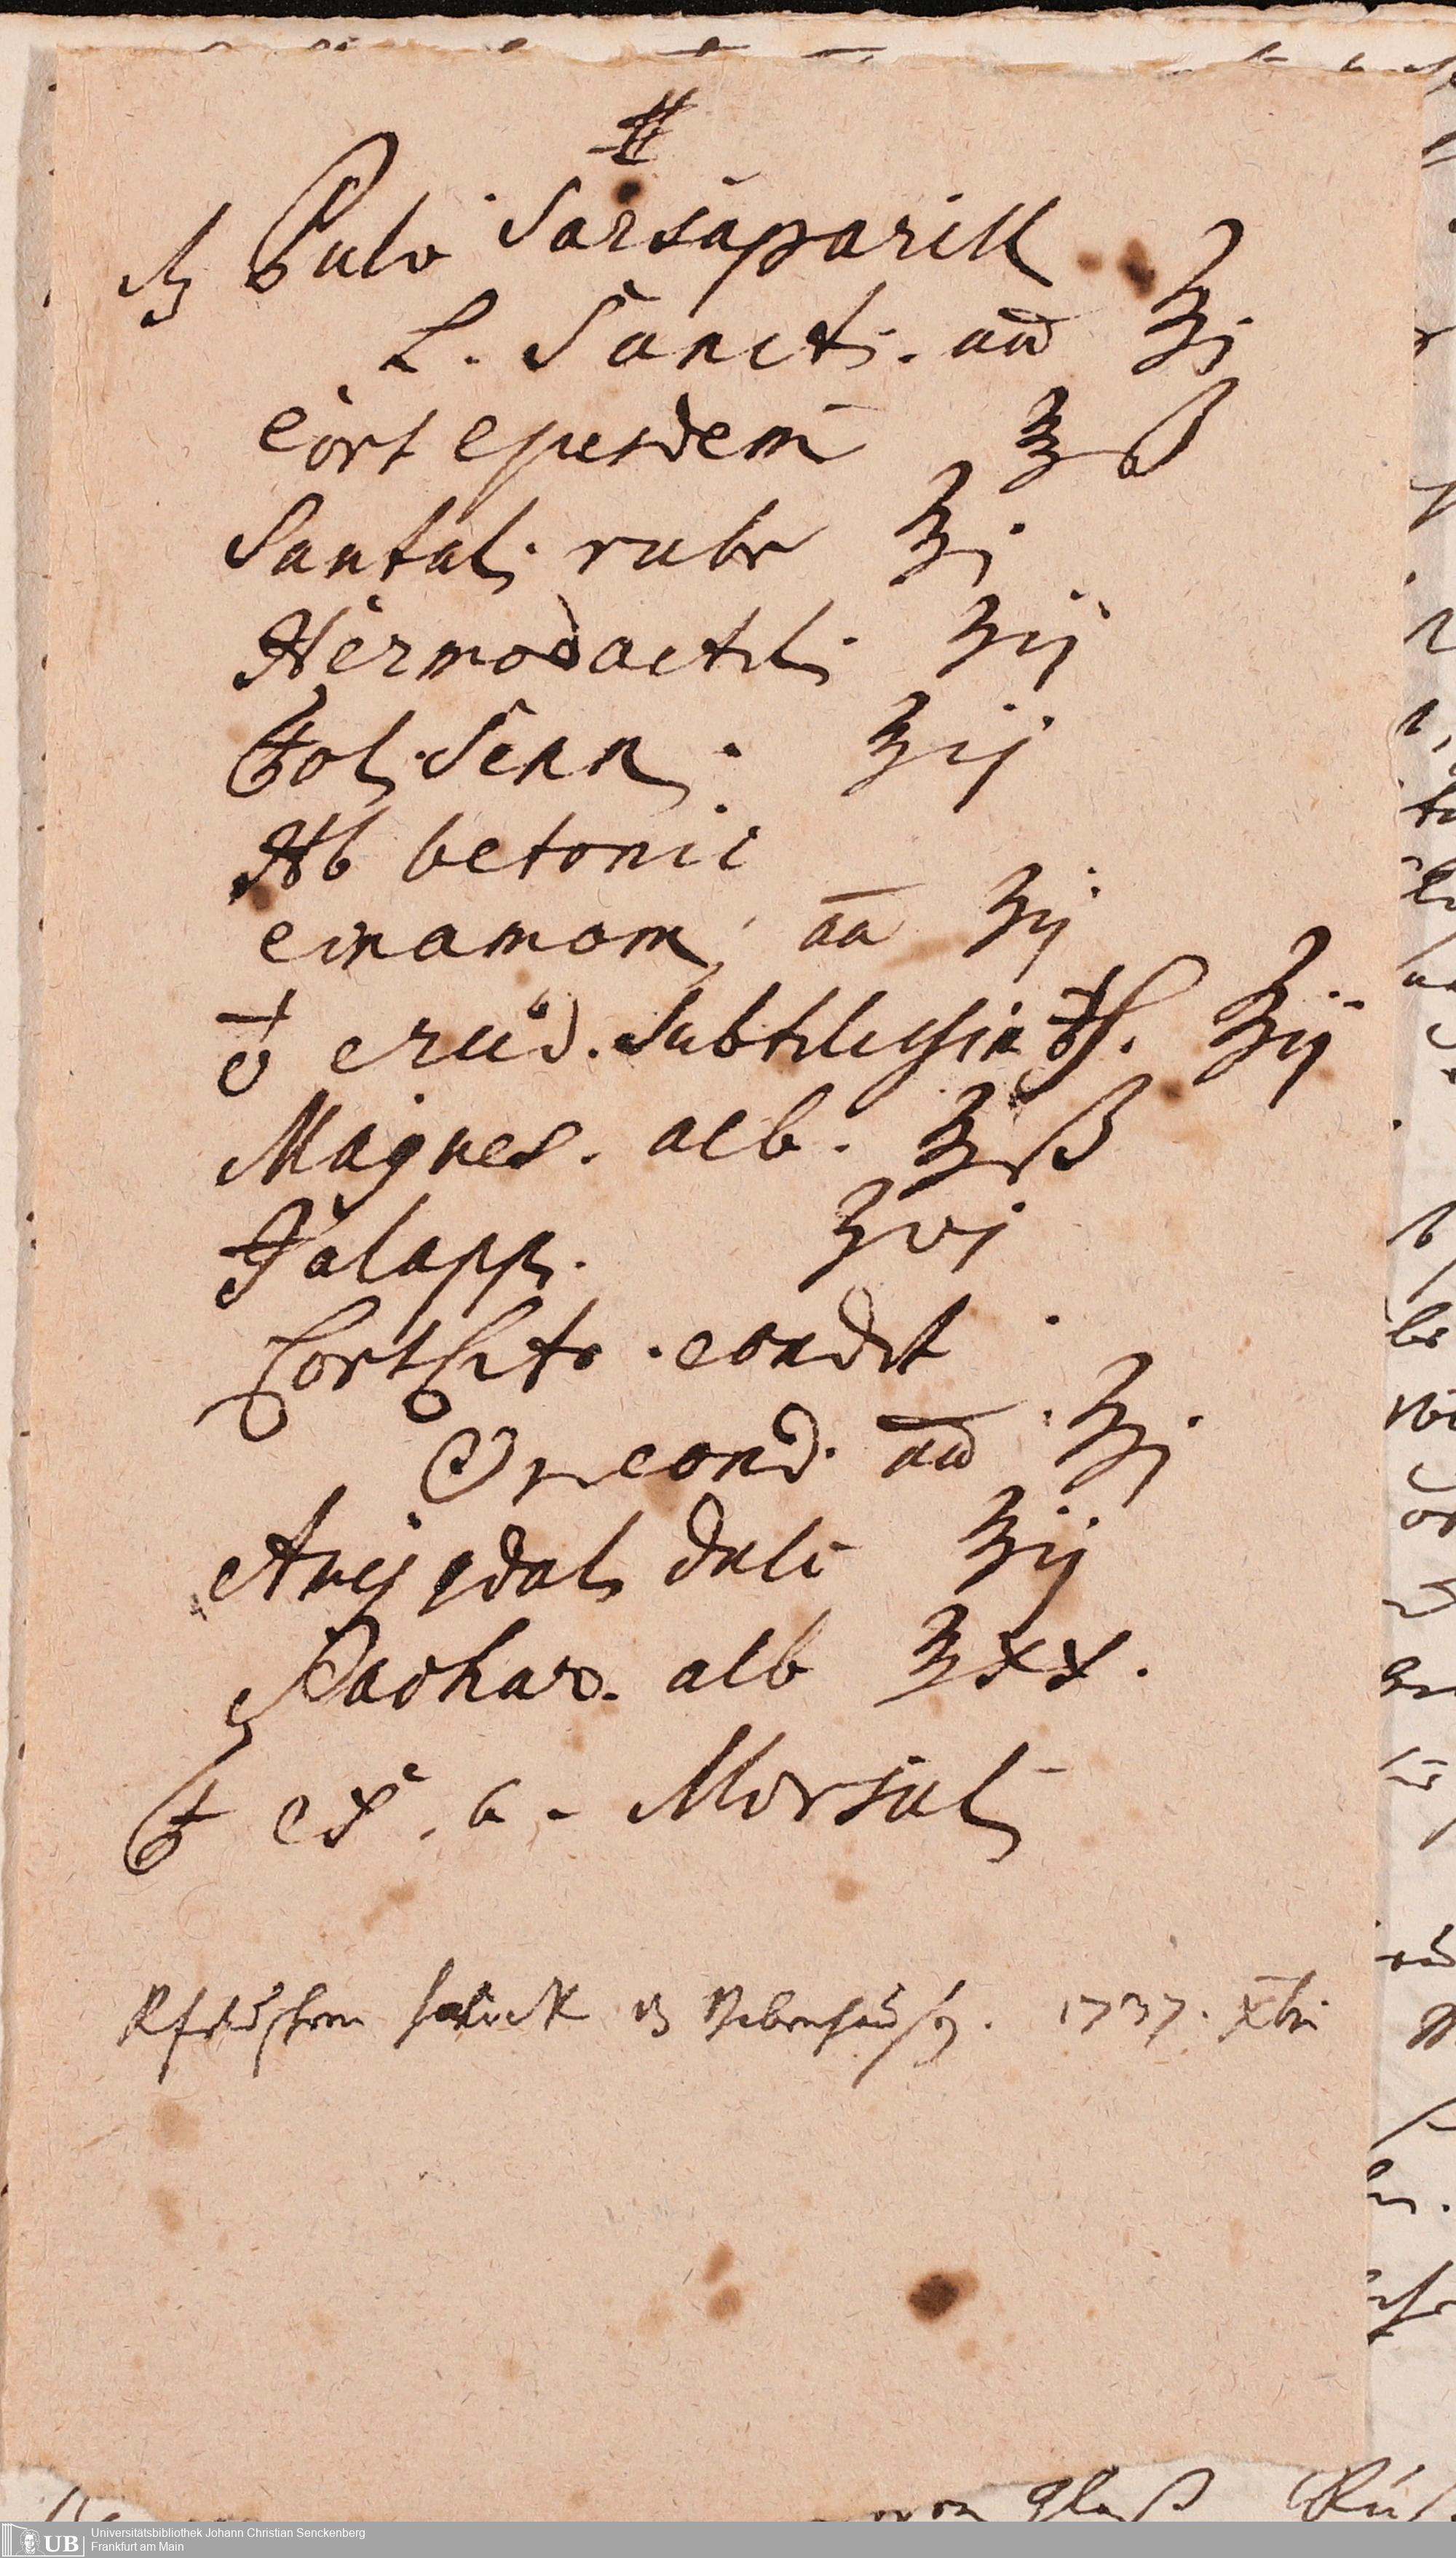 ℞ Pulv Sarsaparill
L. Sanct. aa ℥j
Cort ejusdem ℥ß
Santal. rubr ℥j
Hermodactil. ℥ij
Fol. Senn. ℥ij
Hb betonic
Cinamom. aa ʒij
♁ crud. subtilissin ℥ij
Magnes. alb. ℥ß
Jalapp. ʒvj
Cort Citr. condit
Or cond. aa ℥j
Amÿgdal dulc ℥ij
Sachar. alb ℥xx.
F ex. a. Morsul
1737. Xbr
Universitätsbibliothek Johann Christian Senckenberg
Frankfurt am Main
UB